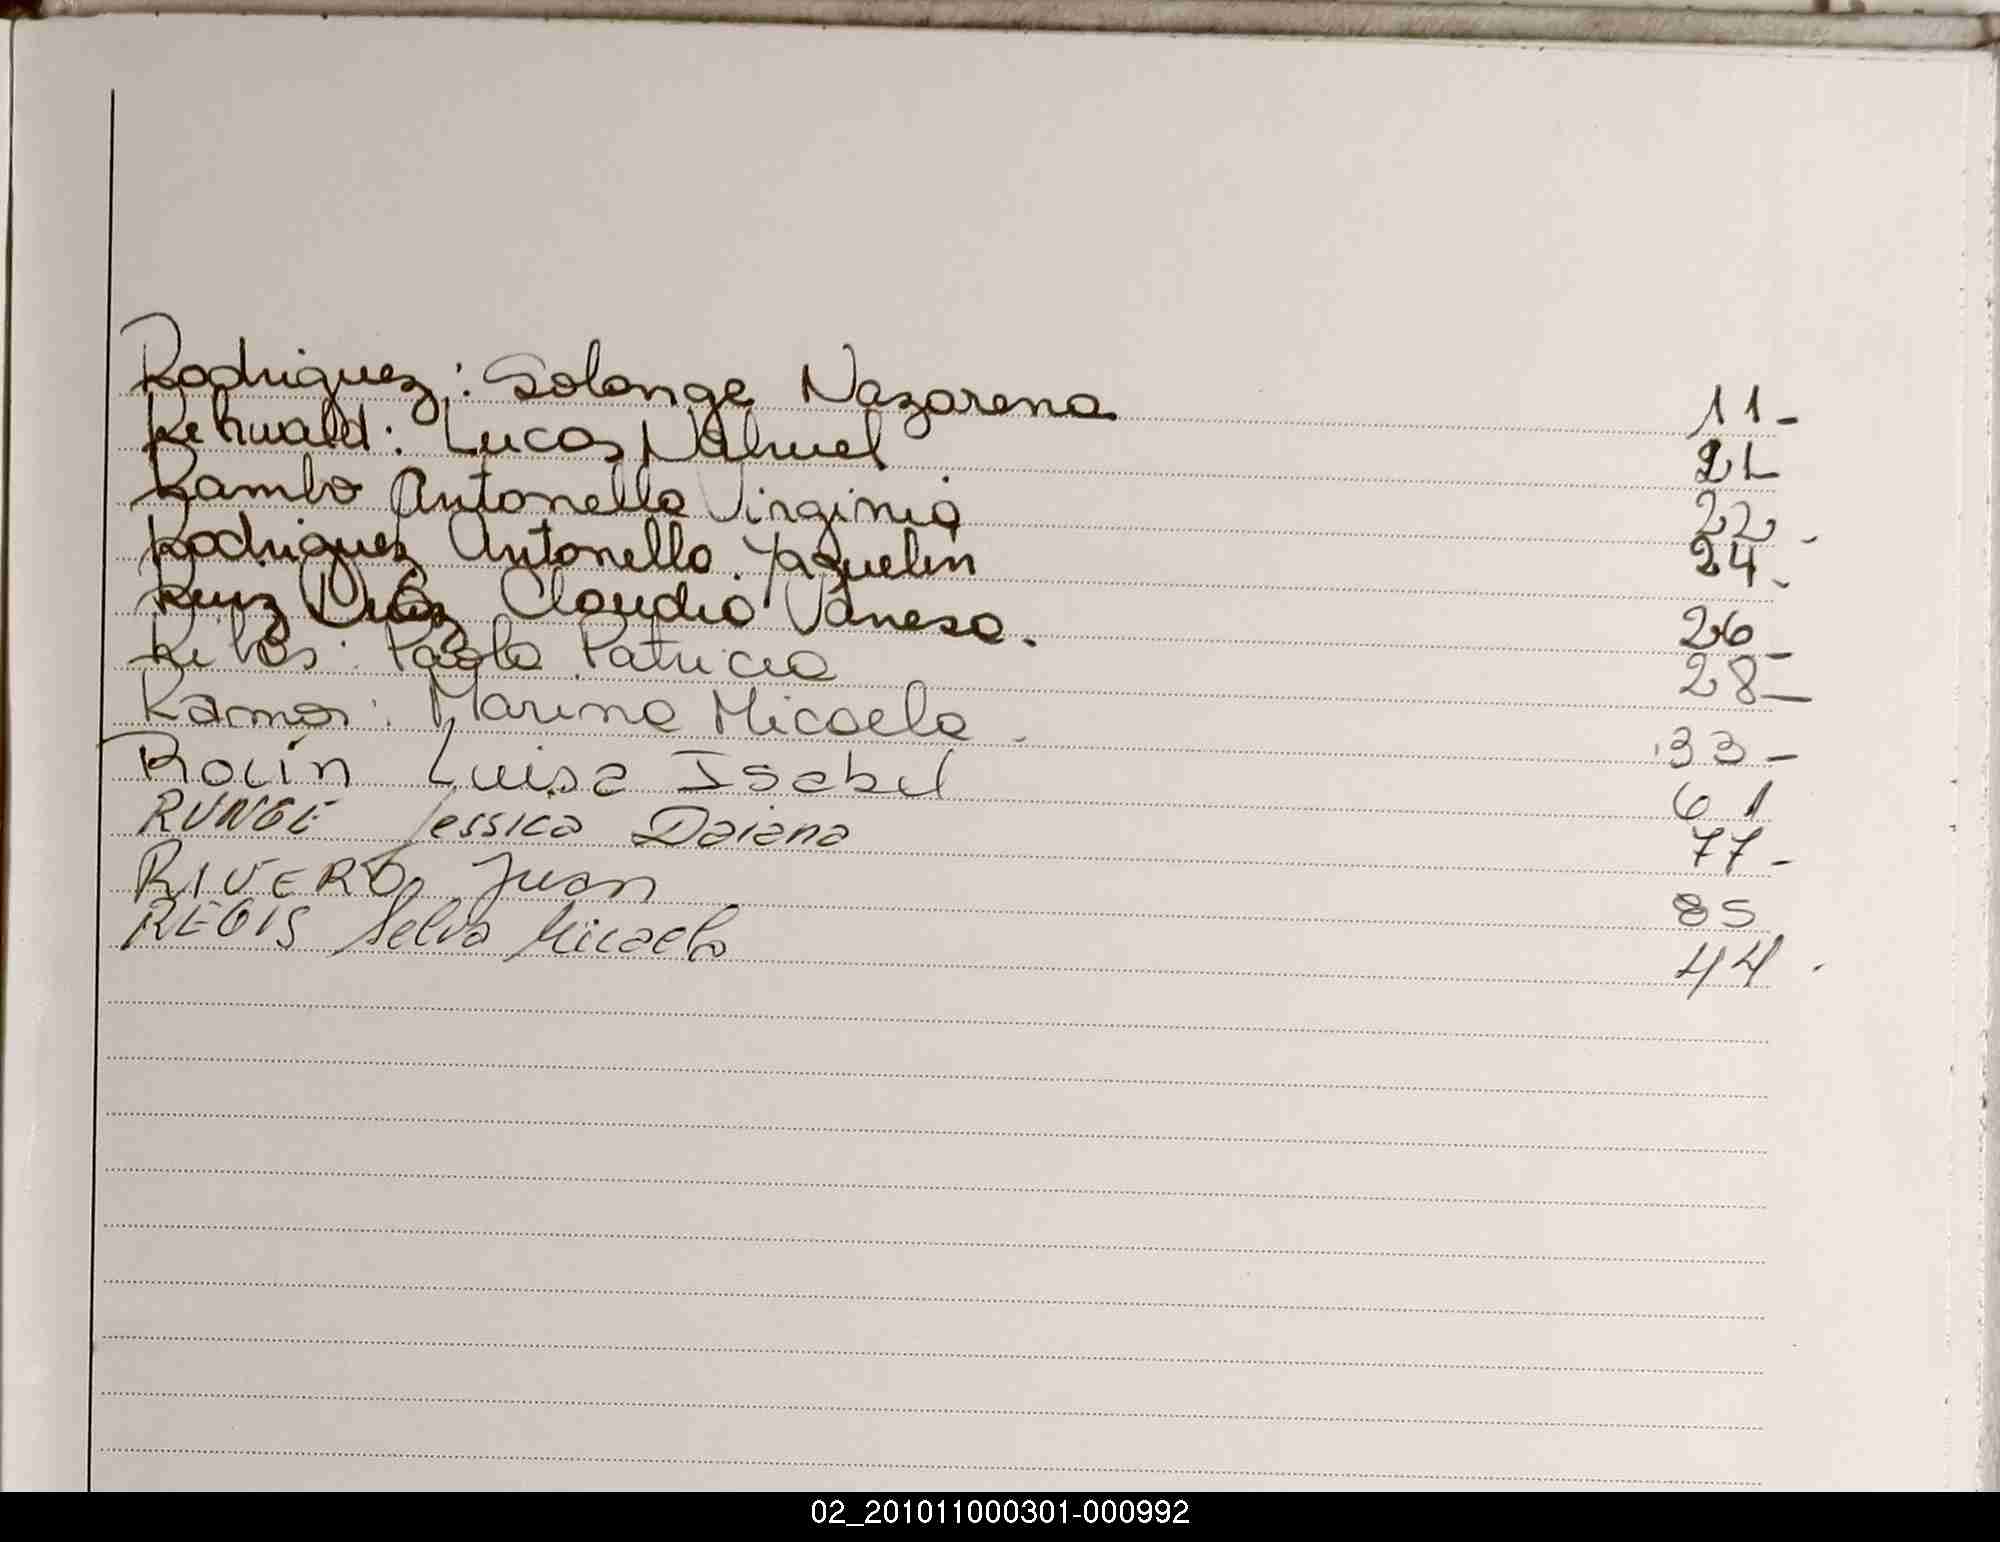 Rodriguez: Solange Nazarena 11-
Rehwald: Lucas Nahuel 21
Rambo Antonella Virginia 22-
Rodriguez Antonella. Yaquelin 24-
Ruiz Diaz Claudia Vanesa. 26-
Paola Patricia 28-
Ramos: Marina Micaela - 33-
Rolín Luisa Isabel 61
RUNGE Jessica Daiana 77-
RIVERO, Juan 85
REGIS Selva Micaela 44.
02_201011000301-000992